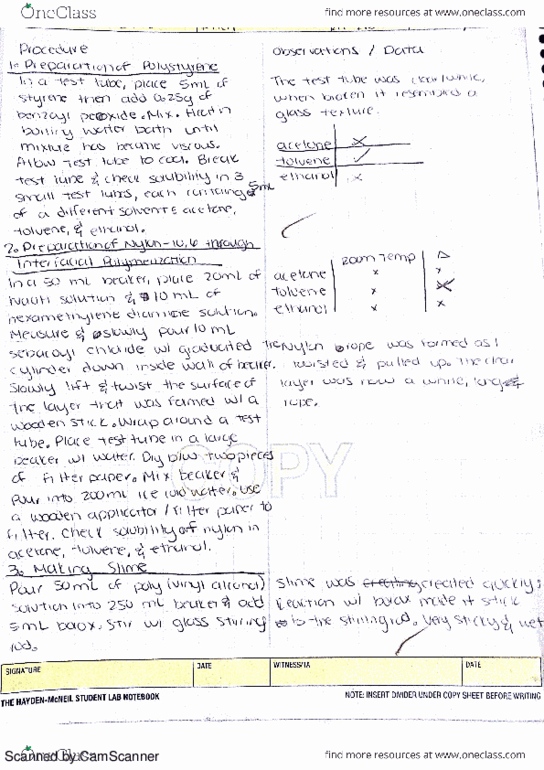 OneClass
find more resources at www.oneclass.com
Procedure
Observations / Data
1. Preparation of Polystyrene
In a test tube, place 5mL of
styrene then add 0.25g of
benzoyl peroxide. Mix. Heat in
boiling water bath until
mixture has became viscous.
Allow test tube to cool. Break
test tube & check solubility in 3
small test tubes, each containing 5mL
of a different solvent: acetone,
toluene, & ethanol.
The test tube was clear/white,
when broken it resembled a
glass texture.
acetone x
toluene ✓
ethanol x
2. Preparation of Nylon-10,6 through
Interfacial Polymerization
In a 50 mL beaker, place 20mL of
NaOH solution & 10 mL of
hexamethylene diamine solution.
Measure & slowly pour 10 mL
sebacoyl chloride w/ graduated
cylinder down inside wall of beaker.
Slowly lift & twist the surface of
the layer that was formed w/ a
wooden stick. Wrap around a test
tube. Place test tube in a large
beaker w/ water. Dry b/w two pieces
of filter paper. Mix beaker &
pour into 200mL ice cold water. Use
a wooden applicator / filter paper to
filter. Check solubility of nylon in
acetone, toluene, & ethanol.
room Temp Δ
acetone x x
toluene x x
ethanol x x
The nylon rope was formed as I
twisted & pulled up. The clear
layer was now a white, long
rope.
COPY
3. Making Slime
Pour 50mL of poly(vinyl alcohol)
solution into 250 mL beaker & add
5mL borax. Stir w/ glass stirring
rod.
Slime was created quickly;
reaction w/ borax made it stick
to the stirring rod. Very sticky & wet
SIGNATURE
DATE
WITNESS/TA
DATE
THE HAYDEN-McNEIL STUDENT LAB NOTEBOOK
NOTE: INSERT DIVIDER UNDER COPY SHEET BEFORE WRITING
Scanned by CamScanner
OneClass
find more resources at www.oneclass.com